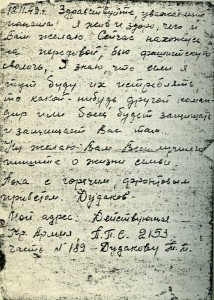 18.II.43г. Здравствуйте уважаемые
папаша. Я жив и здоров чего и
Вам желаю. Сейчас нахожусь
на передовой бью фашистскую
сволочь. Я знаю что если я
тут буду их истреблять
то какой-нибудь другой коман-
дир или боец будет защищать
и защищает Вас там.
Ну желаю Вам Всего лучшего
пишите о жизни семьи
Пока с горячим фронтовым
приветом Дудаков
Мой адрес: Действующая
Кр. Армия П.П.С. 2153
часть N 189 - Дудакову